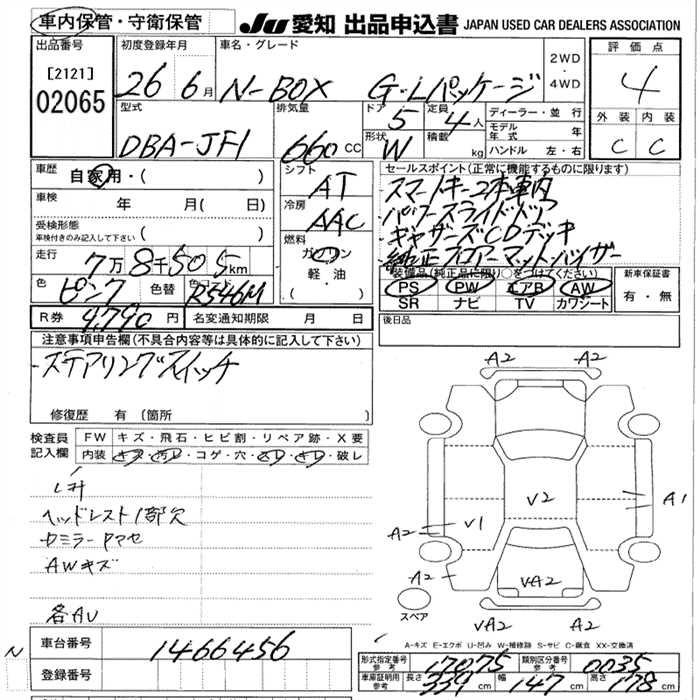 車内保管・守衛保管
JU 愛知 出品申込書 JAPAN USED CAR DEALERS ASSOCIATION
出品番号
[2121]
02065
初度登録年月
26 6 月
車名・グレード
N-BOX G・Lパッケージ
2WD
・
4WD
評価点
4
外装 内装
C C
型式
DBA-JF1
排気量
660 CC
ドア
5
定員
4人
形状
W
積載
kg
ディーラー・並行
モデル年式 年
ハンドル 左・右
車歴
自家用・( )
車検
年 月( )
受検形態
車検付きのみ記入して下さい ( )
走行
7万8千505km
色
ピンク
色替
色コード
R546M
シフト
AT
冷房
AAC
燃料
ガソリン
軽油
( )
セールスポイント(正常に機能するものに限ります)
スマートキー2本車内
パワースライドドア
ギャザーズCDデッキ
純正フロアーマット・バイザー
装備品(純正品に限り○をつけてください)
PS PW エアB AW
SR ナビ TV カワシート
新車保証書
有・無
R券 9,790 円 名変通知期限 月 日
後日品
注意事項申告欄(不具合内容等は具体的に記入して下さい)
ステアリングスイッチ
修復歴 有(箇所 )
検査員記入欄
FW キズ・飛石・ヒビ割・リペア跡・X要
内装 キズ・汚レ・コゲ・穴・スレ・キレ・破レ
ヘッドレスト1部欠
AWキズ
各AU
A2 A2
V2
A1
V1
A2
A2
VA2
スペア
VA2 A2
A-キズ E-エクボ U-凹み W-補修跡 S-サビ C-腐食 XX-交換済
N
車台番号
1466456
登録番号
形式指定番号 参考 17075 類別区分番号 参考 0035
車庫証明用 参考 長さ 339 cm 幅 147 cm 高さ 178 cm